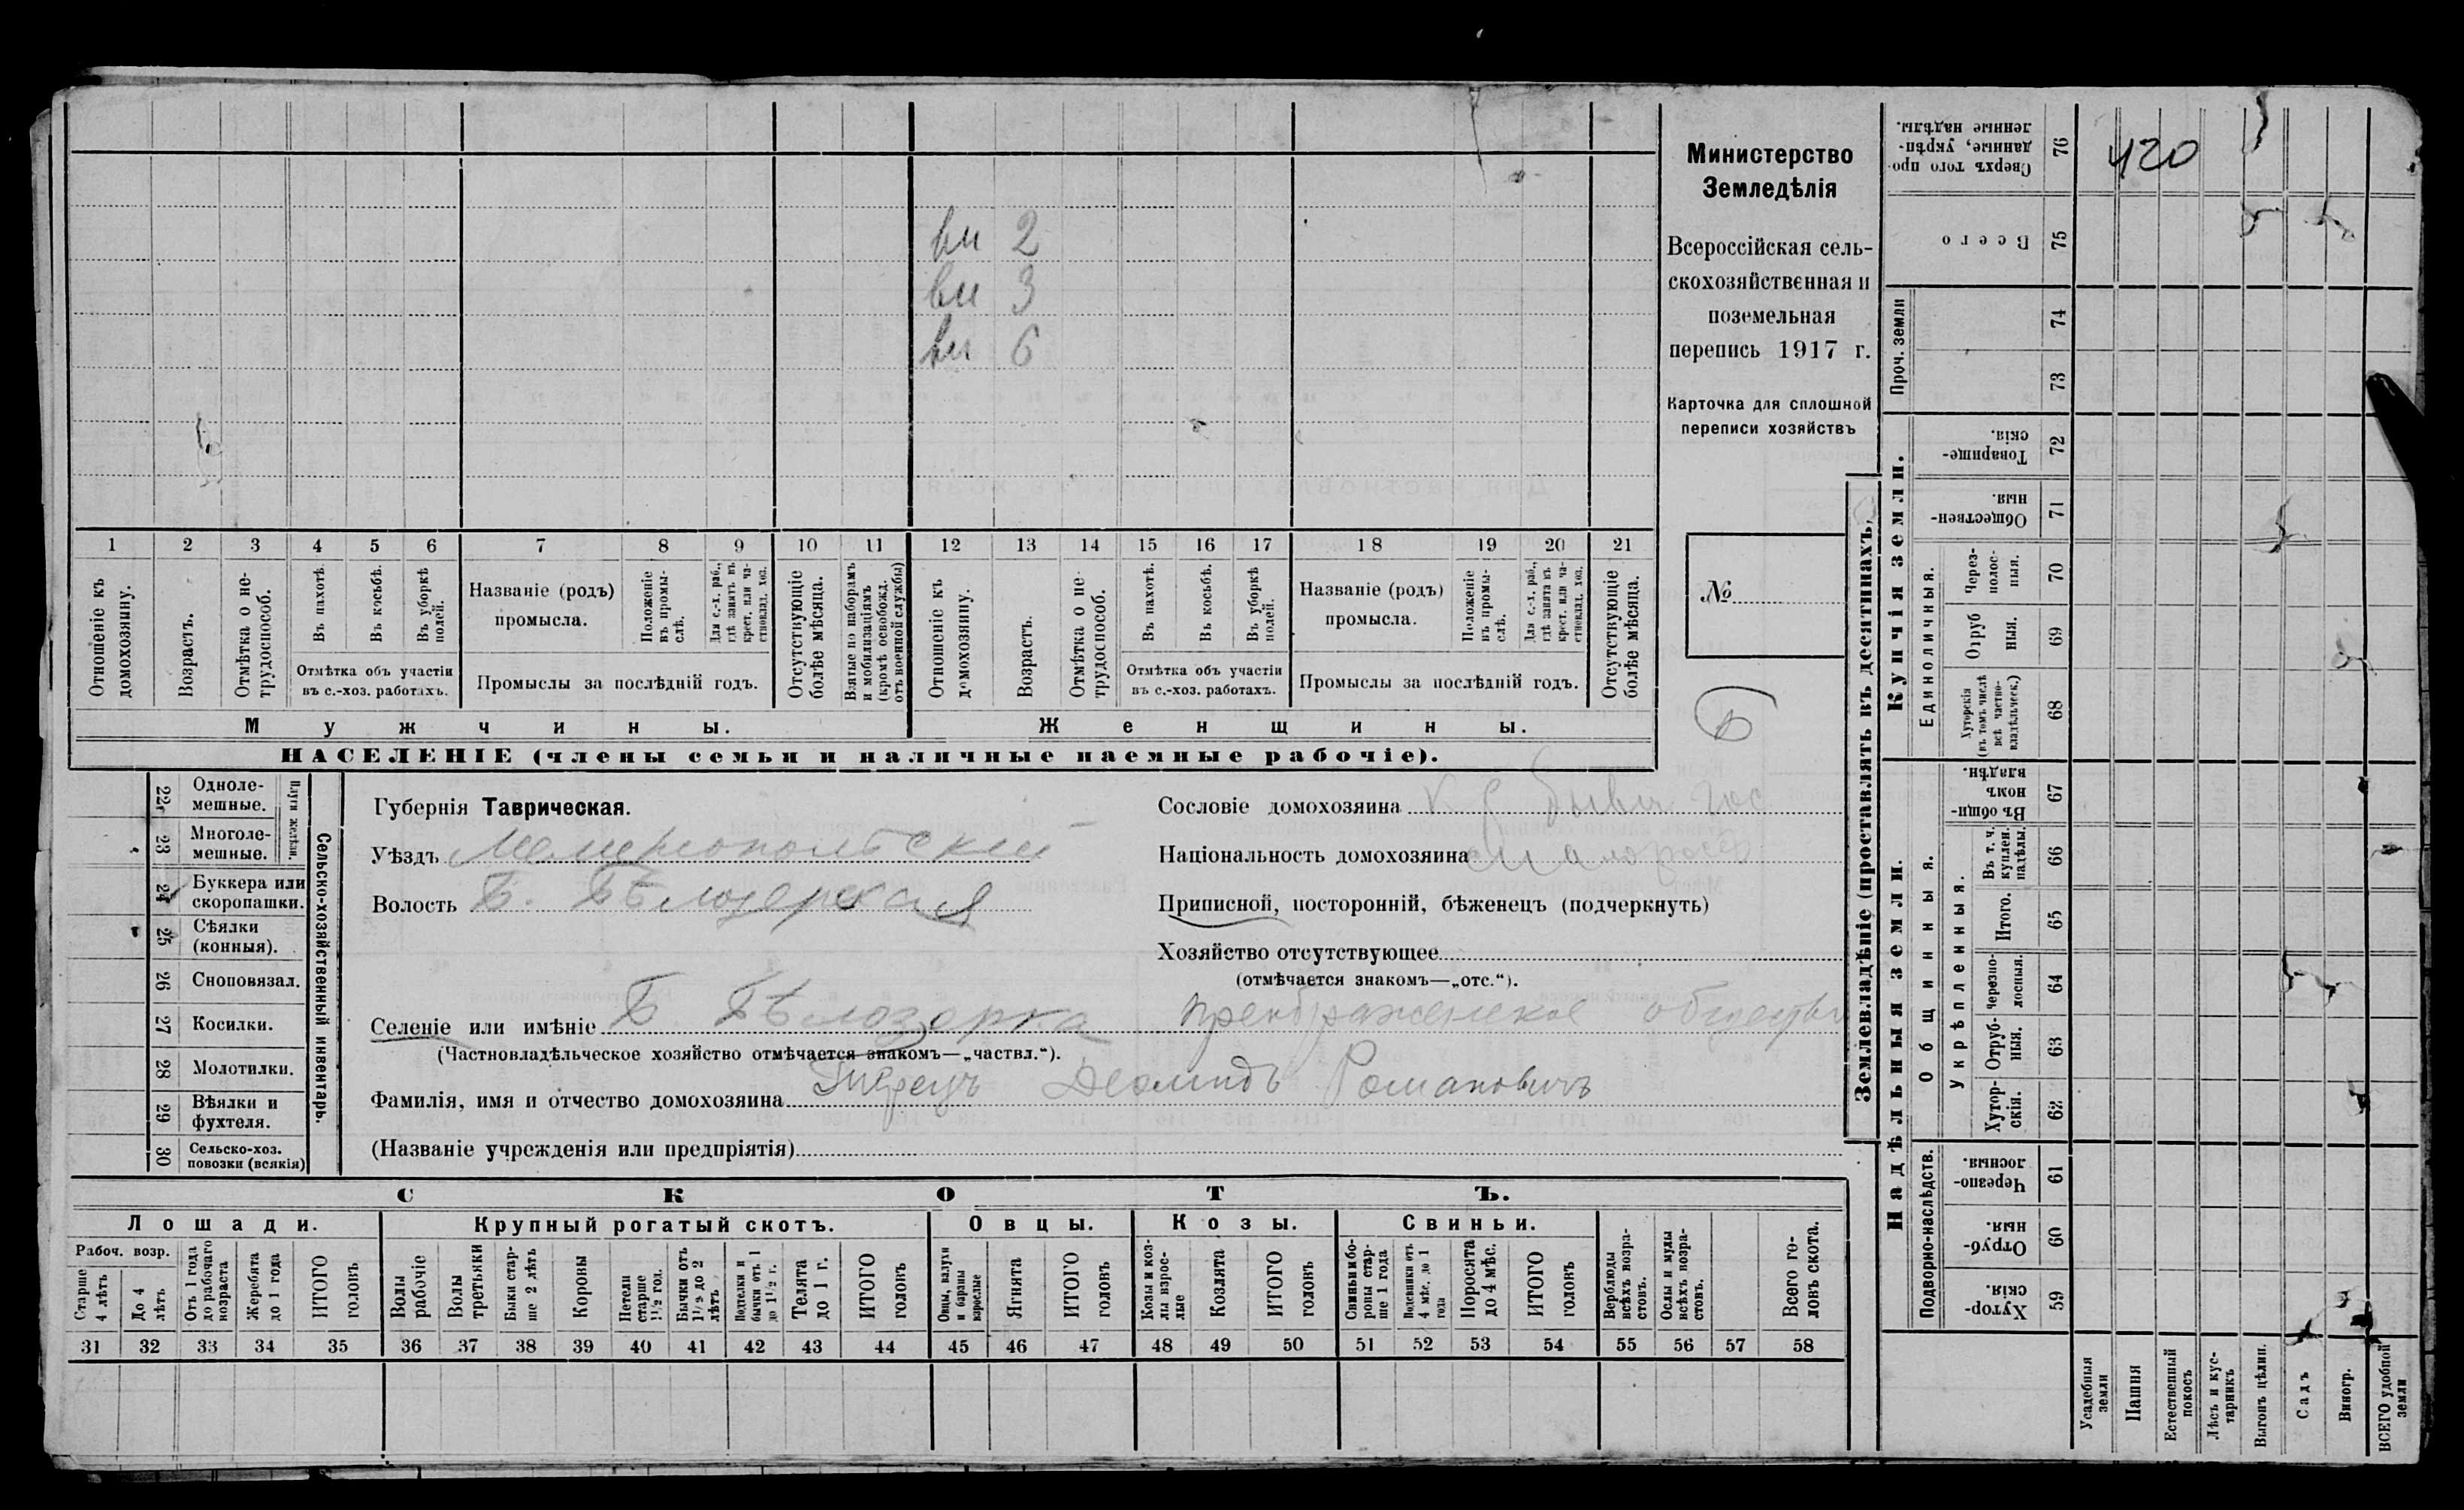 вн 2
вн 3
вн 6
1 2 3 4 5 6 7 8 9 10 11 12 13 14 15 16 17 18 19 20 21
Отношеніе къ домохозяину.
Возрастъ.
Отмѣтка о нетрудоспособ.
Въ пахотѣ.
Въ косьбѣ.
Въ уборкѣ полей.
Отмѣтка объ участіи
въ с.-хоз. работахъ.
Названіе (родъ)
промысла.
Положеніе въ промыслѣ.
Для с.-х. раб., гдѣ занятъ въ крест. или частновлад. хоз.
Промыслы за послѣдній годъ.
Отсутствующіе болѣе мѣсяца.
Взятые по наборамъ и мобилизаціямъ (кромѣ освобожд. отъ военной службы)
Отношеніе къ домохозяину.
Возрастъ.
Отмѣтка о нетрудоспособ.
Въ пахотѣ.
Въ косьбѣ.
Въ уборкѣ полей.
Отмѣтка объ участіи
въ с.-хоз. работахъ.
Названіе (родъ)
промысла.
Положеніе въ промыслѣ.
Для с.-х. раб., гдѣ занята въ крест. или частновлад. хоз.
Промыслы за послѣдній годъ.
Отсутствующіе болѣе мѣсяца.
Мужчины.
Женщины.
НАСЕЛЕНІЕ (члены семьи и наличные наемные рабочіе).
Министерство
Земледѣлія
Всероссійская сель-
скохозяйственная и
поземельная
перепись 1917 г.
Карточка для сплошной
переписи хозяйствъ
№
Б
22 Одноле-
мешные.
23 Многоле-
мешные.
Плуги желѣзн.
24 Буккера или
скоропашки.
25 Сѣялки
(конныя).
26 Сноповязал.
27 Косилки.
28 Молотилки.
29 Вѣялки и
фухтеля.
30 Сельско-хоз.
повозки (всякія)
Сельско-хозяйственный инвентарь.
Губернія Таврическая.
Уѣздъ Мелитопольский
Волость Б. Бѣлозерская
Селеніе или имѣніе Б Бѣлозерка Преображенское
(Частновладѣльческое хозяйство отмѣчается знакомъ—„частвл.“).
Фамилія, имя и отчество домохозяина Романовичъ
(Названіе учрежденія или предпріятія)
Сословіе домохозяина бывш гос
Національность домохозяина малоросс
Приписной, посторонній, бѣженецъ (подчеркнуть)
Хозяйство отсутствующее
(отмѣчается знакомъ—„отс.“).
СКОТЪ.
Лошади.
Рабоч. возр.
Старше 4 лѣтъ
До 4 лѣтъ
Отъ 1 года до рабочаго возраста
Жеребята до 1 года
ИТОГО головъ
Крупный рогатый скотъ.
Волы рабочіе
Волы третьяки
Быки старше 2 лѣтъ
Коровы
Нетели старше 1½ год.
Бычки отъ 1½ до 2 лѣтъ
Подтелки и бычки отъ 1 до 1½ г.
Телята до 1 г.
ИТОГО головъ
Овцы.
Овцы, валухи и бараны взрослые
Ягнята
ИТОГО головъ
Козы.
Козы и козлы взрослые
Козлята
ИТОГО головъ
Свиньи.
Свиньи и боровы старше 1 года
Подсвинки отъ 4 мѣс. до 1 года
Поросята до 4 мѣс.
ИТОГО головъ
Верблюды всѣхъ возрастовъ.
Ослы и мулы всѣхъ возрастовъ.
Всего головъ скота.
31 32 33 34 35 36 37 38 39 40 41 42 43 44 45 46 47 48 49 50 51 52 53 54 55 56 57 58
Землевладѣніе (проставлять въ десятинахъ)
Надѣльныя земли.
Купчія земли.
Проч. земли
Подворно-наслѣдств.
Общинныя.
Укрѣпленныя.
Единоличныя.
Сверхъ того проданные, укрѣпленные надѣлы. 76 420
Всего 75
74
73
Товарищескія. 72
Общественныя. 71
Черезполосныя. 70
Отрубныя. 69
Хуторскія (въ томъ числѣ всѣ частновладѣльческ.) 68
Въ общинномъ владѣн. 67
Въ т. ч. куплен. надѣлы. 66
Итого. 65
Черезполосныя. 64
Отрубныя. 63
Хуторскія. 62
Черезполосныя. 61
Отрубныя. 60
Хуторскія. 59
Усадебныя земли
Пашня
Естественный покосъ
Лѣсъ и кустарникъ
Выгонъ цѣлин.
Садъ
Виногр.
ВСЕГО удобной земли